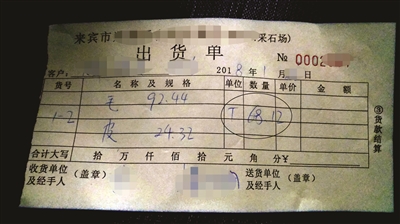 来宾市 采石场)
出货单
№ 0002
客户: 2018年1
货号 名称及规格 单位 数量 单价 金额
毛 92.44
1-2 T 68.12
皮 24.32
合计大写 拾 万 仟 佰 拾 元 角 分¥
收货单位及经手人 (盖章) 送货单位及经手人 (盖章)
③货款结算